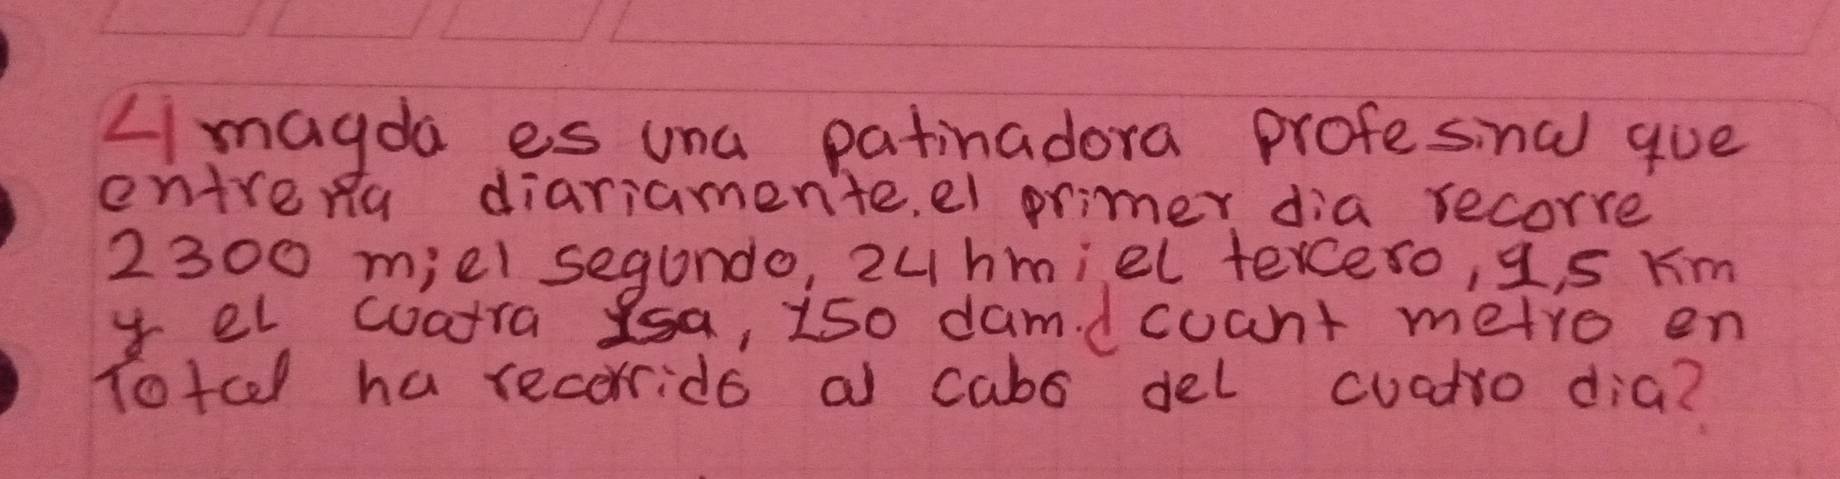 4 magda es una patinadora profesinal que
entrena diariamente. el primer dia recorre
2300 m; el segundo, 24 hm; el tercero, 1,5 Km
y el cuatra, 150 dam. d cuant metro en
Total ha recorrido al cabo del cuatro dia?